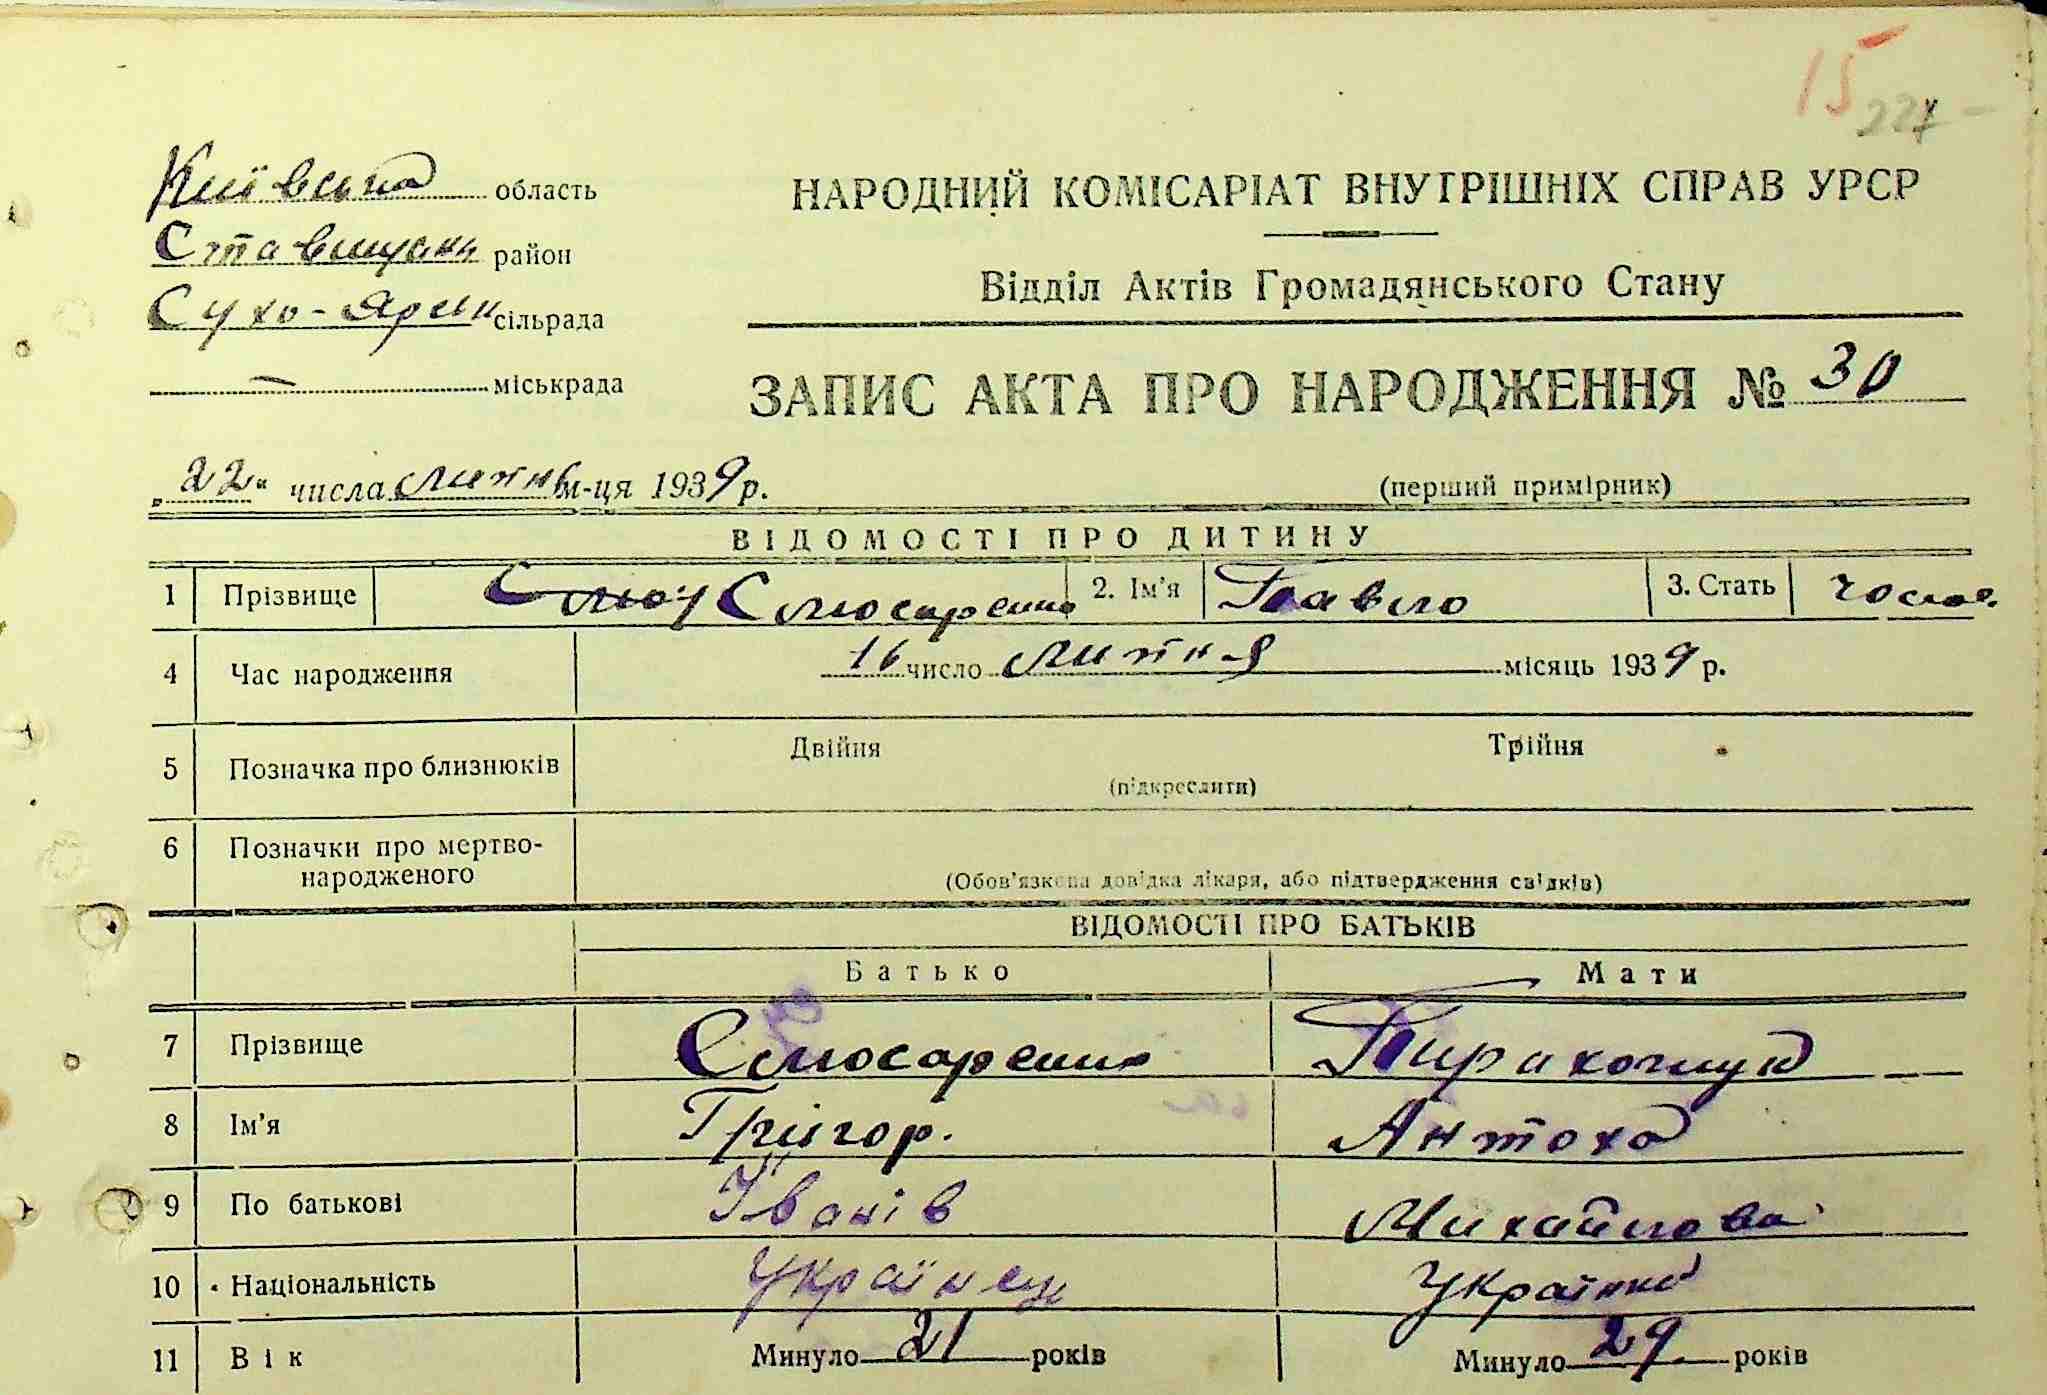 15
227
Київська область
НАРОДНИЙ КОМІСАРІАТ ВНУТРІШНІХ СПРАВ УРСР
Ставищан район
Відділ Актів Громадянського Стану
Сухо-Ярськ сільрада
— міськрада
ЗАПИС АКТА ПРО НАРОДЖЕННЯ № 30
„22“ числа липня м-ця 1939 р.
(перший примірник)
ВІДОМОСТІ ПРО ДИТИНУ
1 Прізвище Слюсаренко 2. Ім'я Павло 3. Стать чолов.
4 Час народження 16 число липня місяць 1939 р.
5 Позначка про близнюків Двійня Трійня
(підкреслити)
6 Позначки про мертво-
народженого
(Обов'язкова довідка лікаря, або підтвердження свідків)
ВІДОМОСТІ ПРО БАТЬКІВ
Батько Мати
7 Прізвище Слюсаренко
8 Ім'я Грігор. Антоха
9 По батькові Іванів Михайлова
10 Національність Українец Українка
11 Вік Минуло 21 років Минуло 29 років